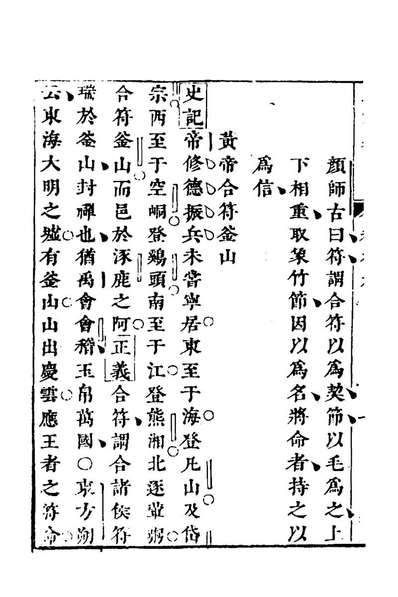 顏師古曰符謂合符以爲契節以毛爲之上
下相重取象竹節因以爲名將命者持之以
爲信
黃帝合符釜山
史記帝修德振兵未嘗寧居東至于海登凡山及岱
宗西至于空峒登鷄頭南至于江登熊湘北逐葷粥
合符釜山而邑於涿鹿之阿正義合符謂合諸侯符
瑞於釜山封禪也猶禹會會稽玉帛萬國○東方朔
云東海大明之墟有釜山山出慶雲應王者之符命